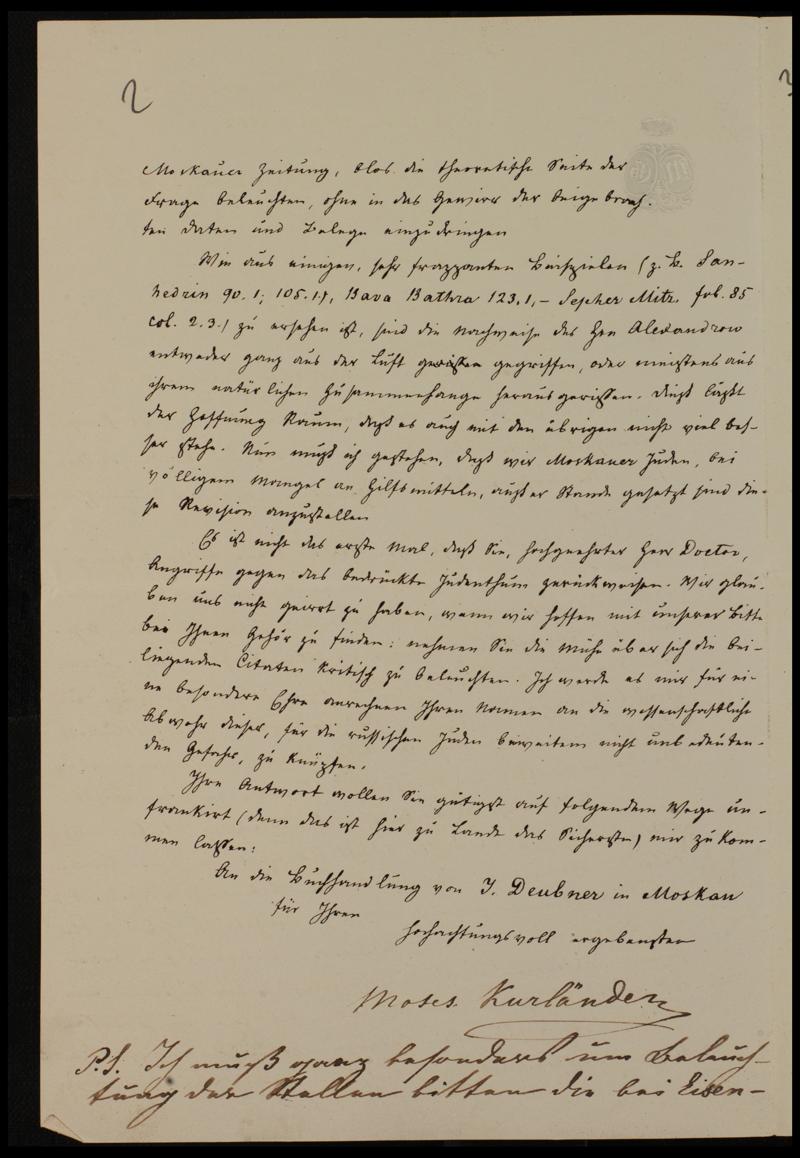 2
Moskauer Zeitung, blos die theoretische Seite der
Frage beleuchten, ohne in das Gewirr der beigebrach-
ten Daten und Belege einzudringen
Wie aus einigen, sehr frappanten Beispielen (z. B. San-
hedrin 90. 1; 105. 1), Bava Bathra 123, 1, – Sepher Mitz. fol. 85
col. 2. 3.) zu ersehen ist, sind die Nachweise des Hrn Alexandrow
entweder ganz aus der Luft gegriffen, oder wenigstens aus
ihrem natürlichen Zusammenhange herausgerissen. Dieß läßt
der Hoffnung Raum, daß es auch mit den übrigen nicht viel bes-
ser stehe. Nun muß ich gestehen, daß wir Moskauer Juden, bei
völligem Mangel an Hilfsmitteln, außer Stande gesetzt sind die-
se Revision anzustellen
Es ist nicht das erste Mal, daß Sie, hochgeehrter Herr Doctor,
Angriffe gegen das bedrückte Judenthum zurückweisen. Wir glau-
ben uns nicht geirrt zu haben, wenn wir hoffen mit unserer Bitte
bei Ihnen Gehör zu finden: nehmen Sie die Mühe über sich die bei-
liegenden Citaten kritisch zu beleuchten. Ich werde es mir für ei-
ne besondere Ehre anrechnen Ihren Namen an die wissenschaftliche
Abwehr dieser, für die russischen Juden beiweitem nicht unbedeuten-
den Gefahr, zu knüpfen.
Ihre Antwort wollen Sie gütigst auf folgendem Wege un-
frankirt (denn das ist hier zu Lande das Sicherste) mir zukom-
men lassen:
An die Buchhandlung von J. Deubner in Moskau
für Ihren
hochachtungsvoll ergebensten
Moses Kurländer
P.S. Ich muß ganz besonders um Beleuch-
tung der Stellen bitten die bei Eisen-